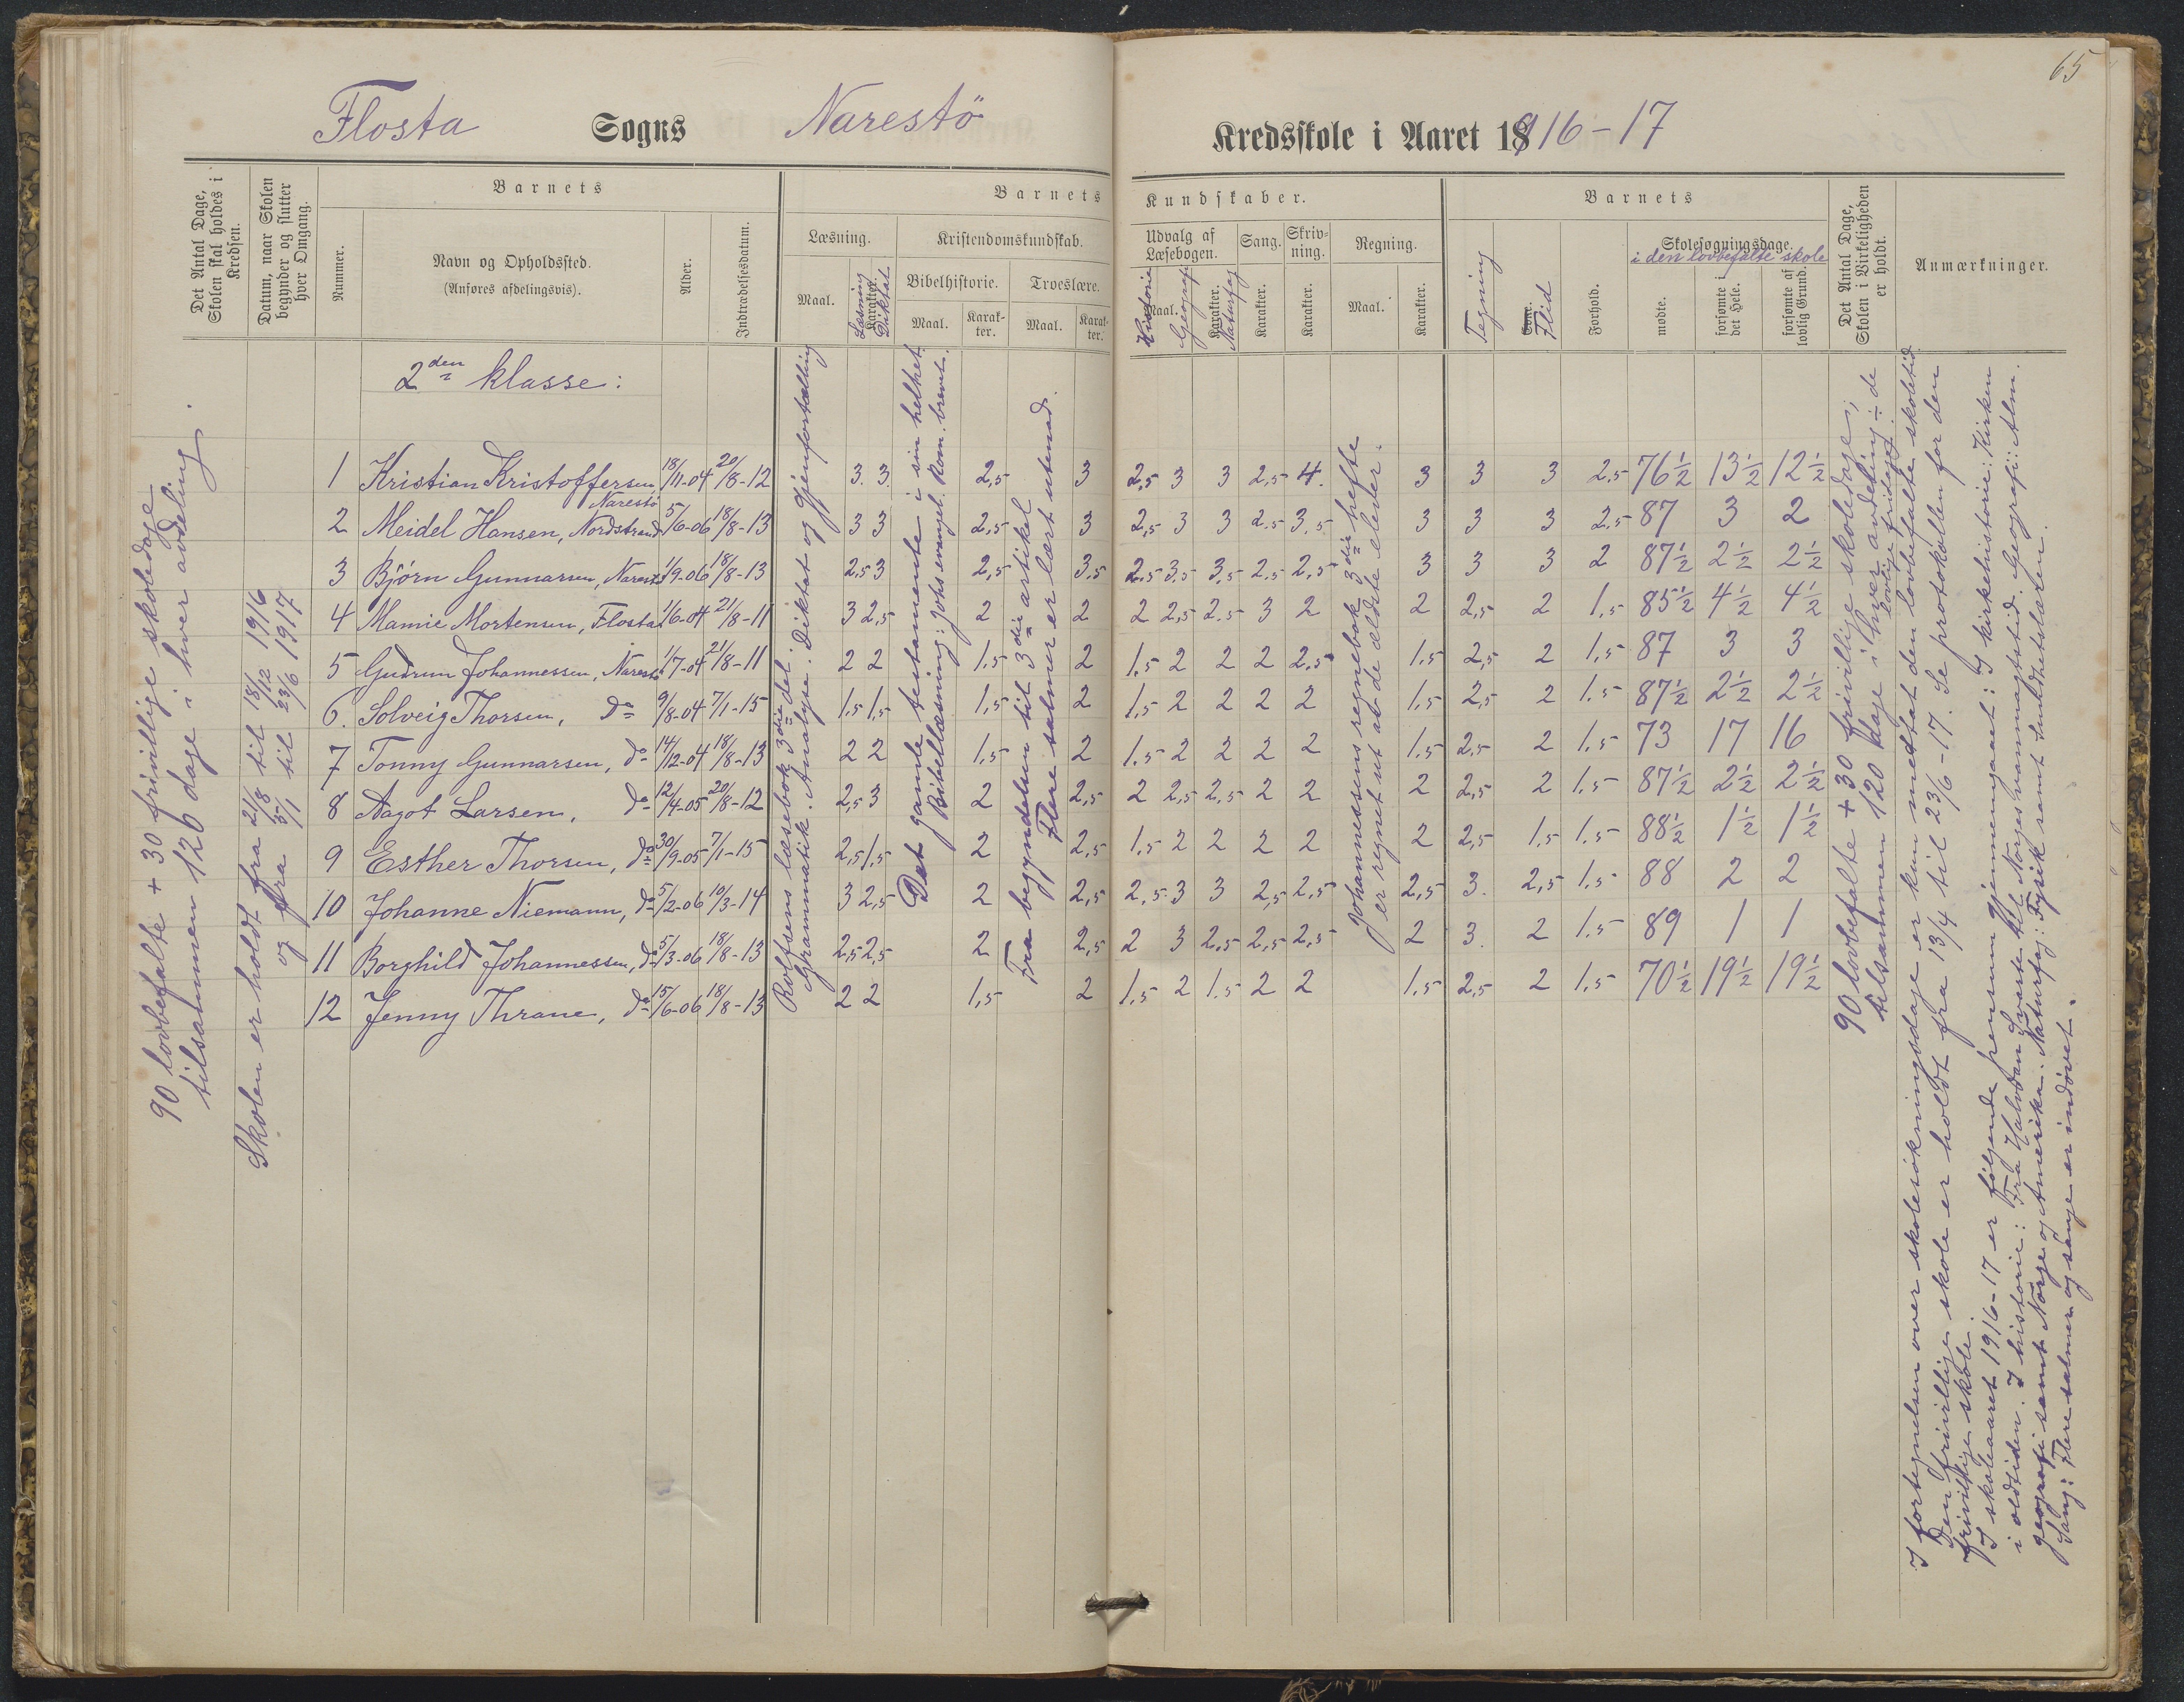 65
Flosta Sogns Narestö Kredsskole i Aaret 1916-17
Det Antal Dage, Skolen skal holdes i Kredsen.
Datum, naar Skolen begynder og slutter hver Omgang.
Barnets
Nummer.
Navn og Opholdssted.
(Anføres afdelingsvis).
Alder.
Indtrædelsesdatum.
Barnets Kundskaber.
Læsning.
Maal.
Læsning
Karakter.
Diktat
Kristendomskundskab.
Bibelhistorie.
Maal.
Karakter.
Troeslære.
Maal.
Karakter.
Udvalg af Læsebogen.
Historie
Maal.
Geografi
Karakter.
Naturfag
Sang.
Karakter.
Skrivning.
Karakter.
Regning.
Maal.
Karakter.
Barnets
Tegning
Flid
Forhold.
Skolesøgningsdage.
i den lovbefalte skole
mødte.
forsømte i det Hele.
forsømte af lovlig Grund.
Det Antal Dage, Skolen i Virkeligheden er holdt.
Anmærkninger.
2den klasse:
1 Kristian Kristoffersen, Narestö 18/11-04 20/8-12 3. 3. 2,5 3 2,5 3 3 2,5 4. 3 3 3 2,5 76½ 13½ 12½
2 Meidel Hansen, Nordstrand 5/6-06 18/8-13 3 3 2,5 3 2,5 3 3 2,5 3,5 3 3 3 2,5 87 3 2
3 Bjørn Gunnarsen, Narestö 1/9-06 18/8-13 2,5 3 2,5 3,5 2,5 3,5 3,5 2,5 2,5 3 3 3 2 87½ 2½ 2½
4 Mamie Mortensen, Flosta 1/6-04 21/8-11 3 2,5 2 2 2 2,5 2,5 3 2 2 2,5 2 1,5 85½ 4½ 4½
5 Gudrun Johannessen, Narestö 1/7-04 21/8-11 2 2 1,5 2 1,5 2 2 2 2,5 1,5 2,5 2 1,5 87 3 3
6. Solveig Thorsen, do 9/8-04 7/1-15 1,5 1,5 1,5 2 1,5 2 2 2 2 1,5 2,5 2 1,5 87½ 2½ 2½
7 Tonny Gunnarsen, do 14/12-04 18/8-13 2 2 1,5 2 1,5 2 2 2 2 1,5 2,5 2 1,5 73 17 16
8 Aagot Larsen, do 12/4-05 20/8-12 2,5 3 2 2,5 2 2,5 2,5 2 2 2 2,5 2 1,5 87½ 2½ 2½
9 Esther Thorsen, do 30/9-05 7/1-15 2,5 1,5 2 2,5 1,5 2 2 2 2 2 2,5 1,5 1,5 88½ 1½ 1½
10 Johanne Niemann, do 5/2-06 10/3-14 3 2,5 2 2,5 2,5 3 3 2,5 2,5 2,5 3. 2,5 1,5 88 2 2
11 Borghild Johannessen, do 5/3-06 18/8-13 2,5 2,5 2 2,5 2 3 2,5 2,5 2,5 2 3. 2 1,5 89 1 1
12 Jenny Thrane, do 15/6-06 18/8-13 2 2 1,5 2 1,5 2 1,5 2 2 1,5 2,5 2 1,5 70½ 19½ 19½
90 lovbefalte + 30 frivillige skoledage
tilsammen 120 dage i hver avdeling.
Skolen er holdt fra 21/8 til 18/12 1916
og fra 5/1 til 23/6 1917
Rolfsens læsebok 3die del.
Grammatik. Analyse. Diktat og gjenfortælling
Det gamle testamente i sin helhet.
Bibellæsning: Johs evangel. Rom. brevet.
Fra begyndelsen til 3die artikel
Flere salmer er lært utenad.
Johannessens regnebok 3die hefte
er regnet ut av de ældste elever.
90 lovbefalte + 30 frivillige skoledage;
tilsammen 120 dage i hver avdeling ÷ de
lovlige fridage.
I fortegnelsen over skolesökningsdage er kun medtat den lovbefalte skoletid.
Den frivillige skole er holdt fra 13/4 til 23/6-17. Se protokollen for den
frivillige skole.
I skoleaaret 1916-17 er følgende pensum gjennemgaaet: I kirkehistorie: Kirken
i oldtiden. I historie: Fra Halvdan Svarte til Norges vanmagtstid. Geografi: Alm.
geografi samt Norge og Amerika. Naturfag: Fysik samt sundhetslæren.
Sang: Flere salmer og sange er indøvet.